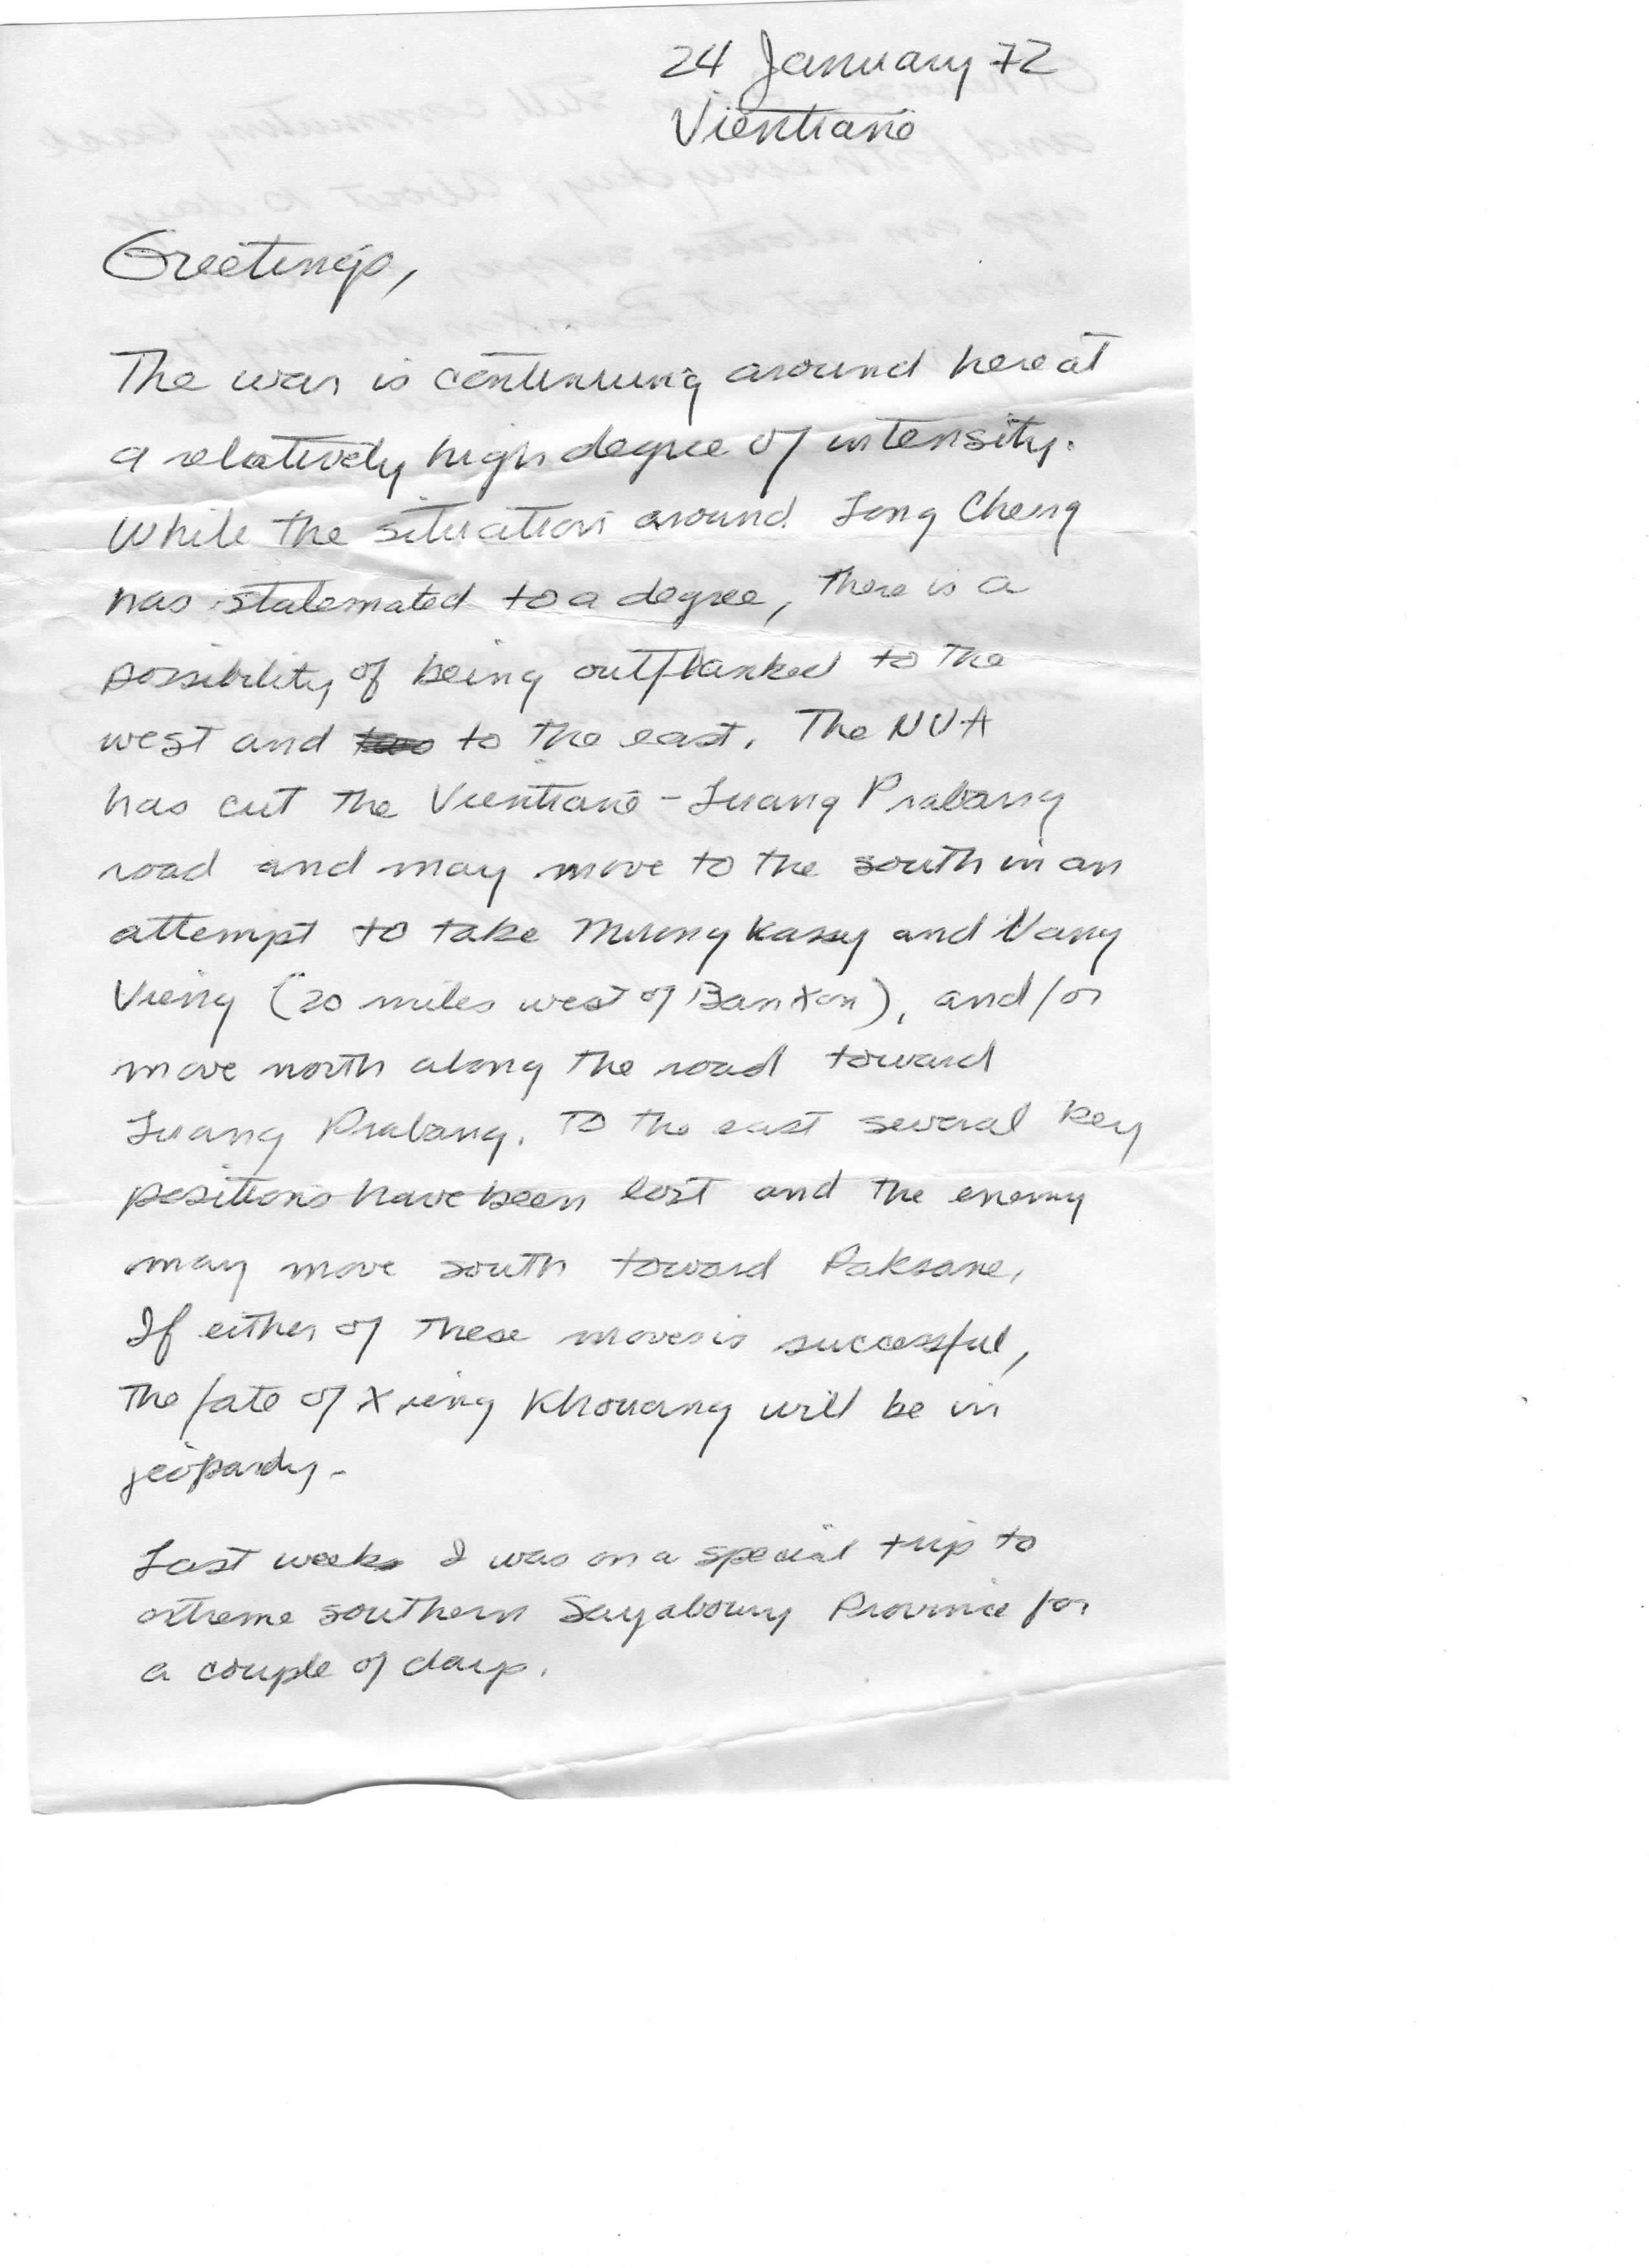 24 January 72
Vientiane
Greetings,
The war is continuing around here at
a relatively high degree of intensity.
While the situation around Long Cheng
has stalemated to a degree, there is a
possibility of being outflanked to the
west and to the east. The NVA
has cut the Vientiane - Luang Prabang
road and may move to the south in an
attempt to take Muong Kassy and Vang
Vieng (20 miles west of Ban Xon), and/or
move north along the road toward
Luang Prabang. To the east several key
positions have been lost and the enemy
may move south toward Paksane.
If either of these moves is successful,
the fate of Xieng Khouang will be in
jeopardy.
Last week I was on a special trip to
extreme southern Sayaboury Province for
a couple of days.